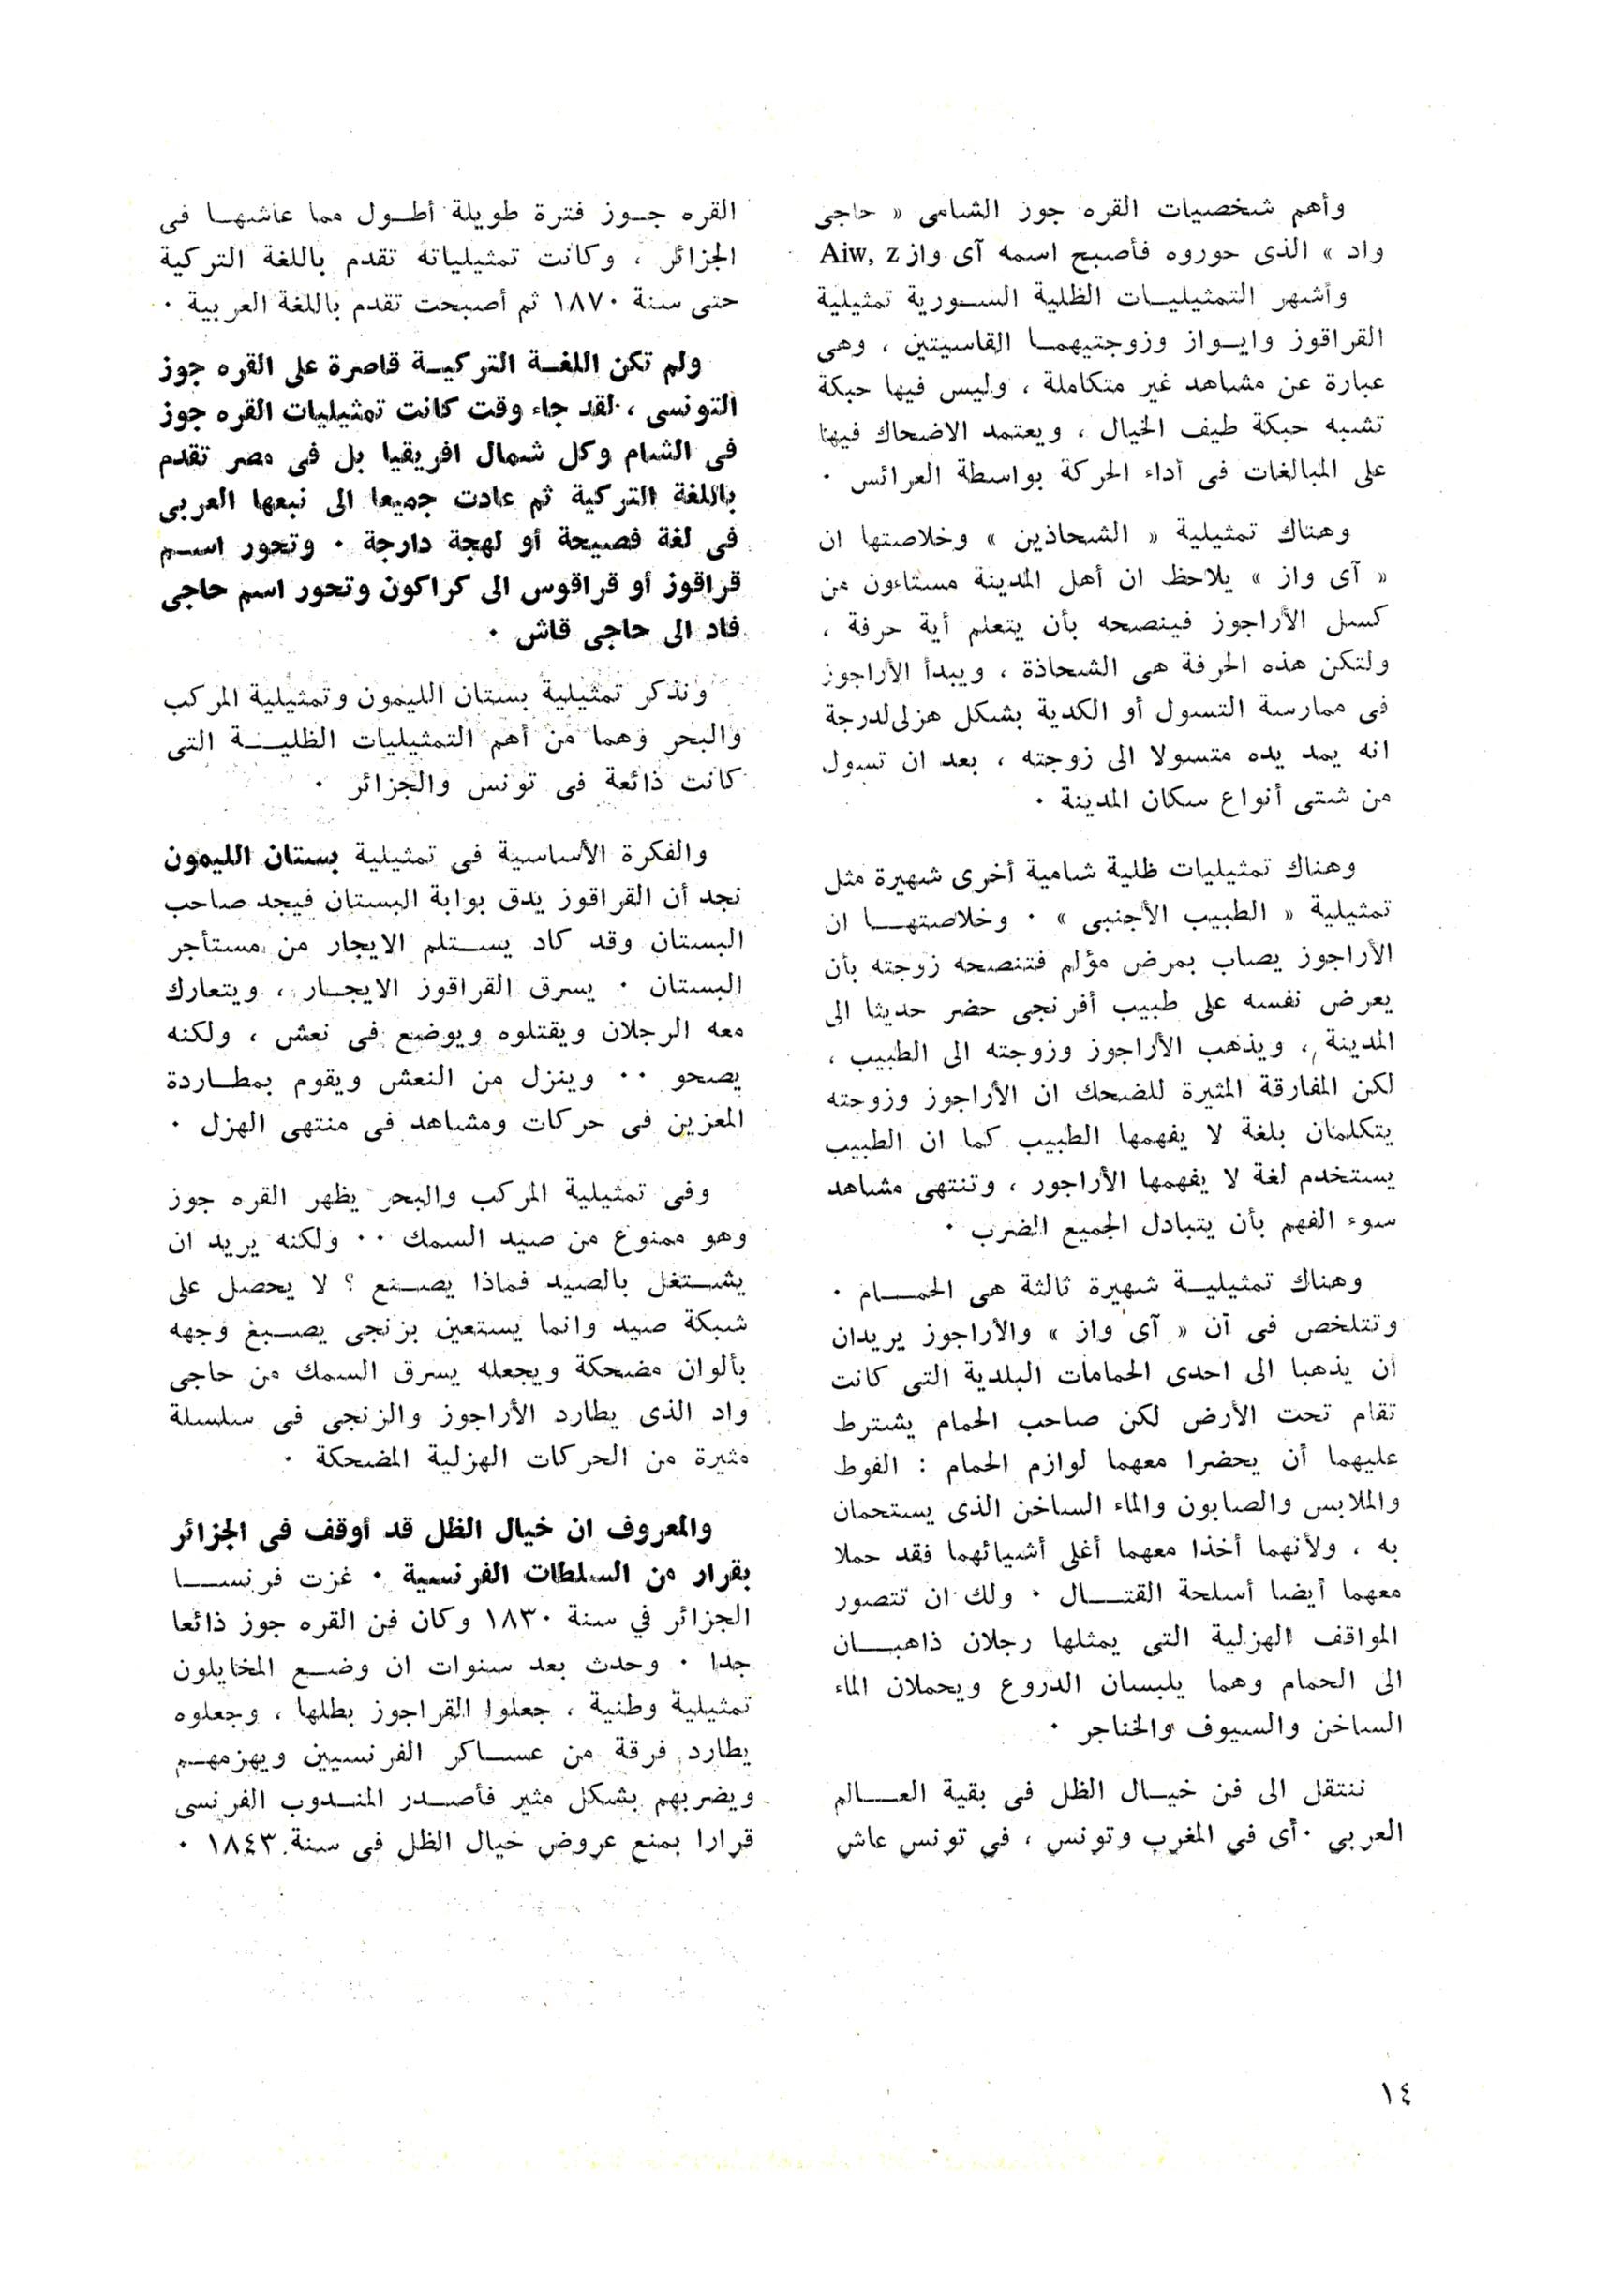 وأهم شخصيات القره جوز الشامى « حاجى
واد » الذى حوروه فأصبح اسمه آى واز Aiw, z
وأشهر التمثيليات الظلية السورية تمثيلية
القراقوز وايواز وزوجتيهما القاسيتين ، وهى
عبارة عن مشاهد غير متكاملة ، وليس فيها حبكة
تشبه حبكة طيف الخيال ، ويعتمد الاضحاك فيها
على المبالغات فى أداء الحركة بواسطة العرائس ٠
وهناك تمثيلية « الشحاذين » وخلاصتها ان
« آى واز » يلاحظ ان أهل المدينة مستاءون من
كسل الأراجوز فينصحه بأن يتعلم أية حرفة ،
ولتكن هذه الحرفة هى الشحاذة ، ويبدأ الأراجوز
فى ممارسة التسول أو الكدية بشكل هزلى لدرجة
انه يمد يده متسولا الى زوجته ، بعد ان تسول
من شتى أنواع سكان المدينة ٠
وهناك تمثيليات ظلية شامية أخرى شهيرة مثل
تمثيلية « الطبيب الأجنبى » ٠ وخلاصتها ان
الأراجوز يصاب بمرض مؤلم فتنصحه زوجته بأن
يعرض نفسه على طبيب أفرنجى حضر حديثا الى
المدينة ، ويذهب الأراجوز وزوجته الى الطبيب ،
لكن المفارقة المثيرة للضحك ان الأراجوز وزوجته
يتكلمان بلغة لا يفهمها الطبيب كما ان الطبيب
يستخدم لغة لا يفهمها الأراجور ، وتنتهى مشاهد
سوء الفهم بأن يتبادل الجميع الضرب ٠
وهناك تمثيلية شهيرة ثالثة هى الحمام ٠
وتتلخص فى أن « آى واز » والأراجوز يريدان
أن يذهبا الى احدى الحمامات البلدية التى كانت
تقام تحت الأرض لكن صاحب الحمام يشترط
عليهما أن يحضرا معهما لوازم الحمام : الفوط
والملابس والصابون والماء الساخن الذى يستحمان
به ، ولأنهما أخذا معهما أغلى أشيائهما فقد حملا
معهما أيضا أسلحة القتال ٠ ولك ان تتصور
المواقف الهزلية التى يمثلها رجلان ذاهبان
الى الحمام وهما يلبسان الدروع ويحملان الماء
الساخن والسيوف والخناجر ٠
ننتقل الى فن خيال الظل فى بقية العالم
العربي ٠ أى في المغرب وتونس ، في تونس عاش
القره جوز فترة طويلة أطول مما عاشها فى
الجزائر ، وكانت تمثيلياته تقدم باللغة التركية
حتى سنة ١٨٧٠ ثم أصبحت تقدم باللغة العربية ٠
ولم تكن اللغة التركية قاصرة على القره جوز
التونسى ، لقد جاء وقت كانت تمثيليات القره جوز
فى الشام وكل شمال افريقيا بل فى مصر تقدم
باللغة التركية ثم عادت جميعا الى نبعها العربى
فى لغة فصيحة أو لهجة دارجة ٠ وتحور اسم
قراقوز أو قراقوس الى كراكون وتحور اسم حاجى
فاد الى حاجى قاش ٠
ونذكر تمثيلية بستان الليمون وتمثيلية المركب
والبحر وهما من أهم التمثيليات الظلية التى
كانت ذائعة فى تونس والجزائر ٠
والفكرة الأساسية فى تمثيلية بستان الليمون
نجد أن القراقوز يدق بوابة البستان فيجد صاحب
البستان وقد كاد يستلم الايجار من مستأجر
البستان ٠ يسرق القراقوز الايجار ، ويتعارك
معه الرجلان ويقتلوه ويوضع فى نعش ، ولكنه
يصحو ٠٠ وينزل من النعش ويقوم بمطاردة
المعزين فى حركات ومشاهد فى منتهى الهزل ٠
وفى تمثيلية المركب والبحر يظهر القره جوز
وهو ممنوع من صيد السمك ٠٠ ولكنه يريد ان
يشتغل بالصيد فماذا يصنع ؟ لا يحصل على
شبكة صيد وانما يستعين بزنجى يصبغ وجهه
بألوان مضحكة ويجعله يسرق السمك من حاجى
واد الذى يطارد الأراجوز والزنجى فى سلسلة
مثيرة من الحركات الهزلية المضحكة ٠
والمعروف ان خيال الظل قد أوقف فى الجزائر
بقرار من السلطات الفرنسية ٠ غزت فرنسا
الجزائر في سنة ١٨٣٠ وكان فن القره جوز ذائعا
جدا ٠ وحدث بعد سنوات ان وضع المخايلون
تمثيلية وطنية ، جعلوا القراجوز بطلها ، وجعلوه
يطارد فرقة من عساكر الفرنسيين ويهزمهم
ويضربهم بشكل مثير فأصدر المندوب الفرنسى
قرارا بمنع عروض خيال الظل فى سنة ١٨٤٣ ٠
١٤